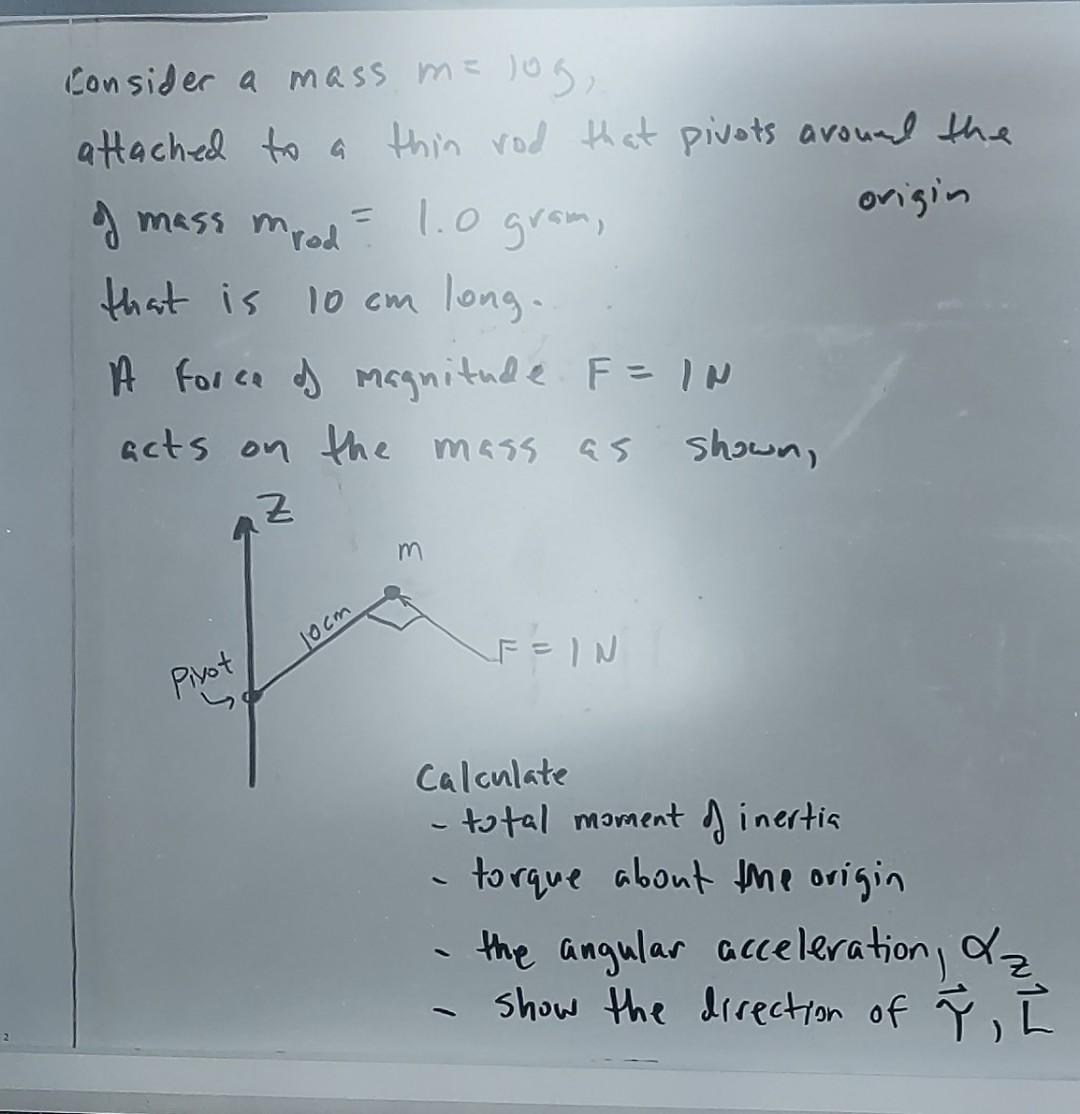 Consider a mass m = 10g,
attached to a thin rod that pivots around the
origin
of mass m_rod = 1.0 gram,
that is 10 cm long.
A force of magnitude F = 1 N
acts on the mass as shown,
Z
m
10cm
Pivot
F = 1 N
Calculate
- total moment of inertia
- torque about the origin
- the angular acceleration, α_z
- show the direction of τ⃗, L⃗
2